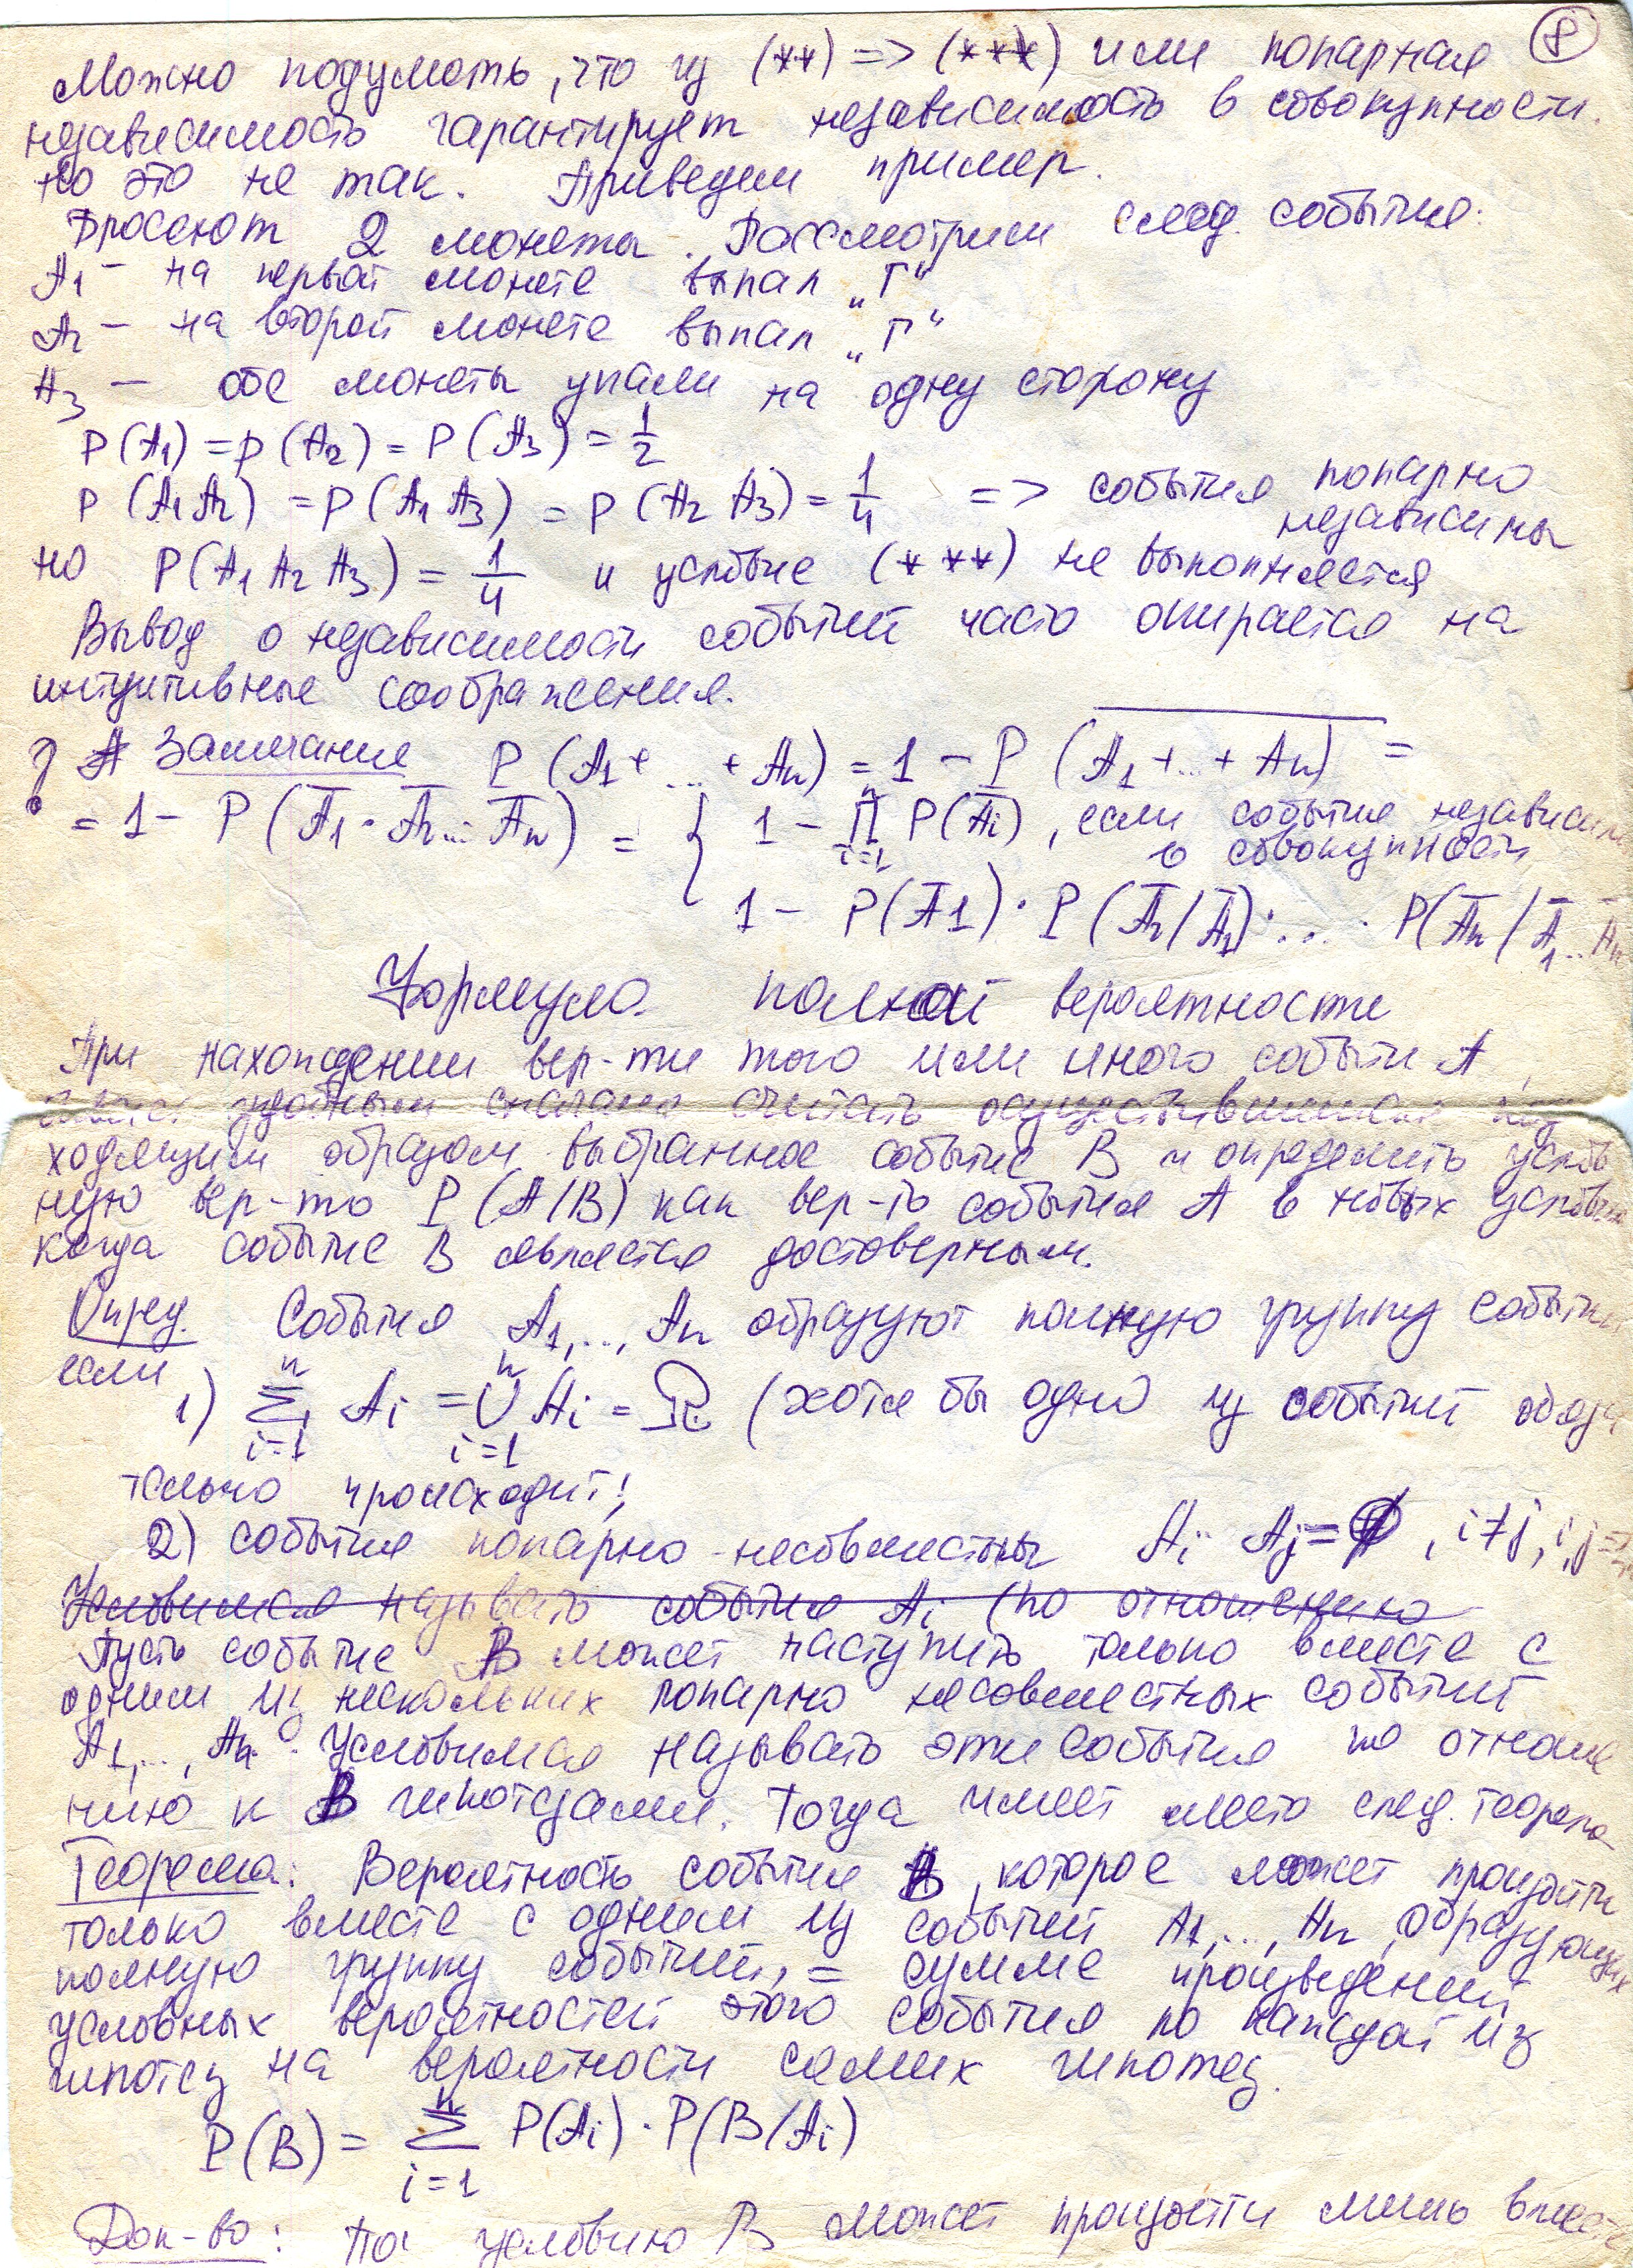 8
Можно подумать, что из (**) => (***) или попарная
независимость гарантирует независимость в совокупности.
Но это не так. Приведем пример.
Бросают 2 монеты. Рассмотрим след. события:
A₁ – на первой монете выпал „Г“
A₂ – на второй монете выпал „Г“
A₃ – обе монеты упали на одну сторону
P(A₁) = P(A₂) = P(A₃) = 1/2
P(A₁A₂) = P(A₁A₃) = P(A₂A₃) = 1/4 => события попарно
независимы
но P(A₁A₂A₃) = 1/4 и условие (***) не выполняется
Вывод о независимости событий часто опирается на
интуитивные соображения.
Замечание P(A₁+...+Aₙ) = 1 – P(\overline{A₁+...+Aₙ}) =
= 1 – P(Ā₁·Ā₂...·Āₙ) = { 1 – ∏ⁿᵢ₌₁ P(Āᵢ), если события независимы
в совокупности
1 – P(Ā₁)·P(Ā₂/Ā₁)·...·P(Āₙ/Ā₁...Āₙ
Формула полной вероятности
При нахождении вер-ти того или иного событи A,
удобным сначала считать осуществившимся под
ходящим образом выбранное событие B и определить услов
ную вер-ть P(A/B) как вер-ть события A в новых условиях
когда событие B является достоверным.
Опред. События A₁,..., Aₙ образуют полную группу событий
если
1) ∑ⁿᵢ₌₁ Aᵢ = ∪ⁿᵢ₌₁ Aᵢ = Ω (хотя бы одно из событий обяза
тельно происходит!
2) события попарно-несовместны Aᵢ Aⱼ = ∅, i≠j, i,j=
Условимся называть события Aᵢ (по отношению
Пусть событие B может наступить только вместе с
одним из нескольких попарно несовместных событий
A₁,..., Aₙ. Условимся называть эти события по отноше
нию к B гипотезами. Тогда имеет место след. теорема
Теорема: Вероятность события B, которое может произойти
только вместе с одним из событий A₁,..., Aₙ, образующих
полную группу событий, = сумме произведений
условных вероятностей этого события по каждой из
гипотез на вероятности самих гипотез.
P(B) = ∑ⁿᵢ₌₁ P(Aᵢ)·P(B/Aᵢ)
Док-во: По условию B может произойти лишь вместе